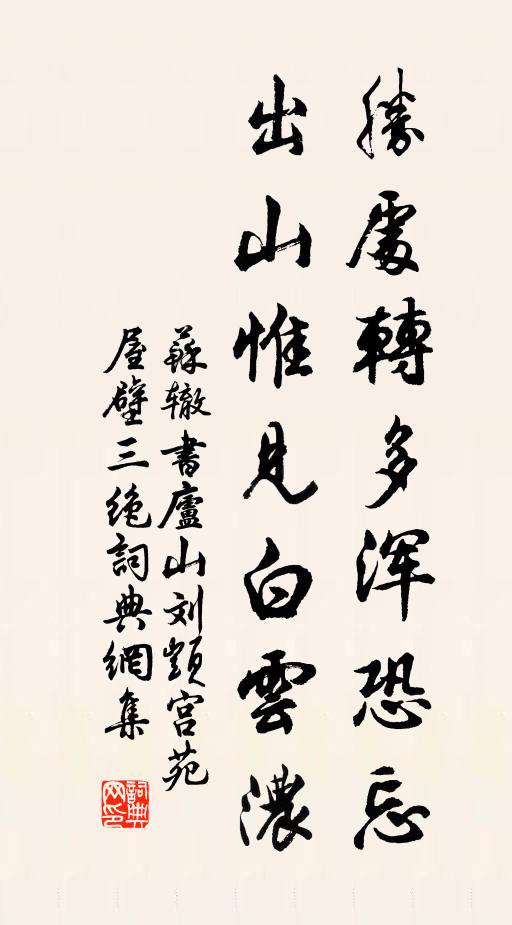 勝處轉多浑恐忘
出山惟見白雲濃
蘇辙書廬山刘顗宫苑
屋壁三绝詞典網集
詞典网印